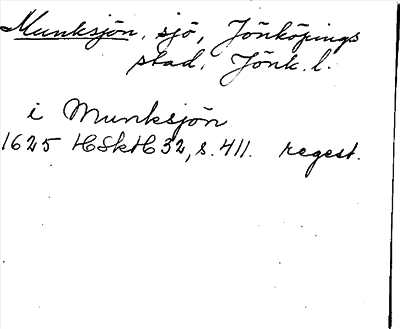 Munksjön, sjö, Jönköpings
stad, Jönk. l.
i Munksjön
1625 HSkH 32, s. 411. regest.